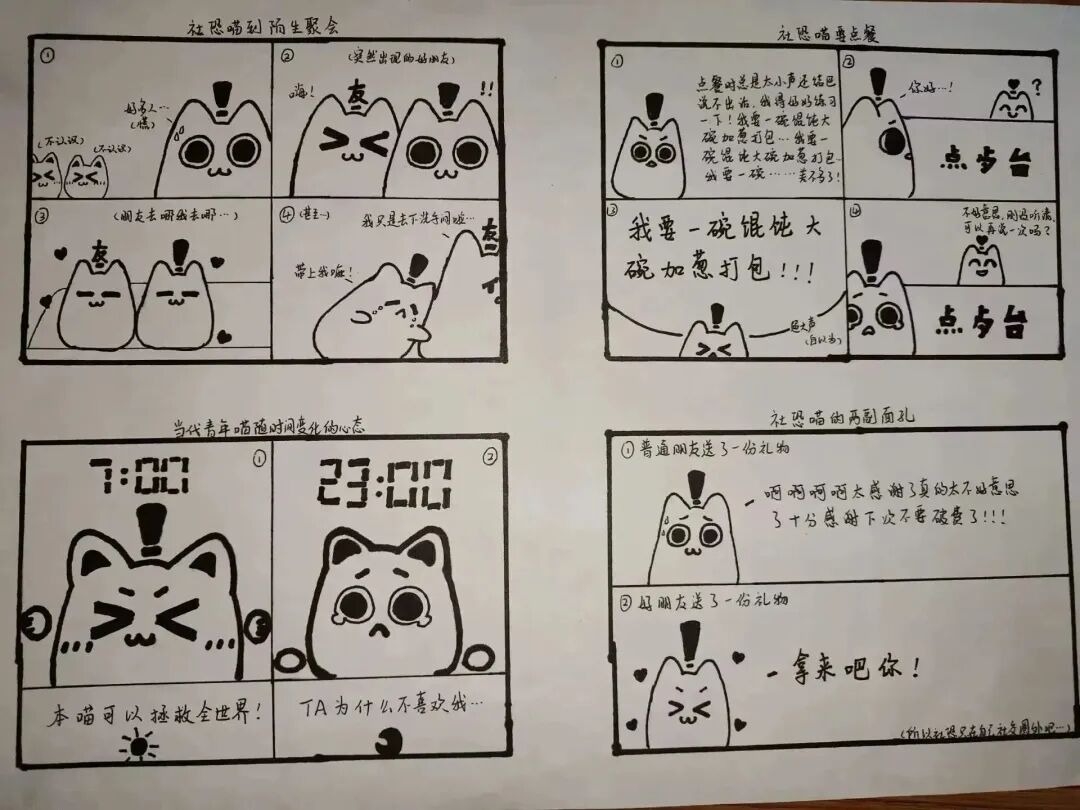 社恐喵到陌生聚会
①
好多人…
(慌)
(不认识)
(不认识)
②
(突然出现的好朋友)
嗨!
友
!!
③
(朋友去哪我去哪…)
友
④
(甚至…)
我只是去下洗手间啦…
带上我嘛!
友
社恐喵要点餐
①
点餐时总是太小声还结巴
说不出话,我得好好练习
一下!我要一碗馄饨大
碗加葱打包…我要一
碗馄饨大碗加葱打包…
我要一碗……
②
你好…!
?
点歩台
③
我要一碗馄饨大
碗加葱打包!!!
超大声
(自以为)
④
不好意思,刚没听清,
可以再说一次吗?
点歩台
当代青年喵随时间变化的心态
①
7:00
本喵可以拯救全世界!
②
23:00
TA为什么不喜欢我…
社恐喵的两副面孔
①普通朋友送了一份礼物
啊啊啊啊太感谢了真的太不好意思
了十分感谢下次不要破费了!!!
②好朋友送了一份礼物
拿来吧你!
(所以社恐只在自己社交圈外吧…)